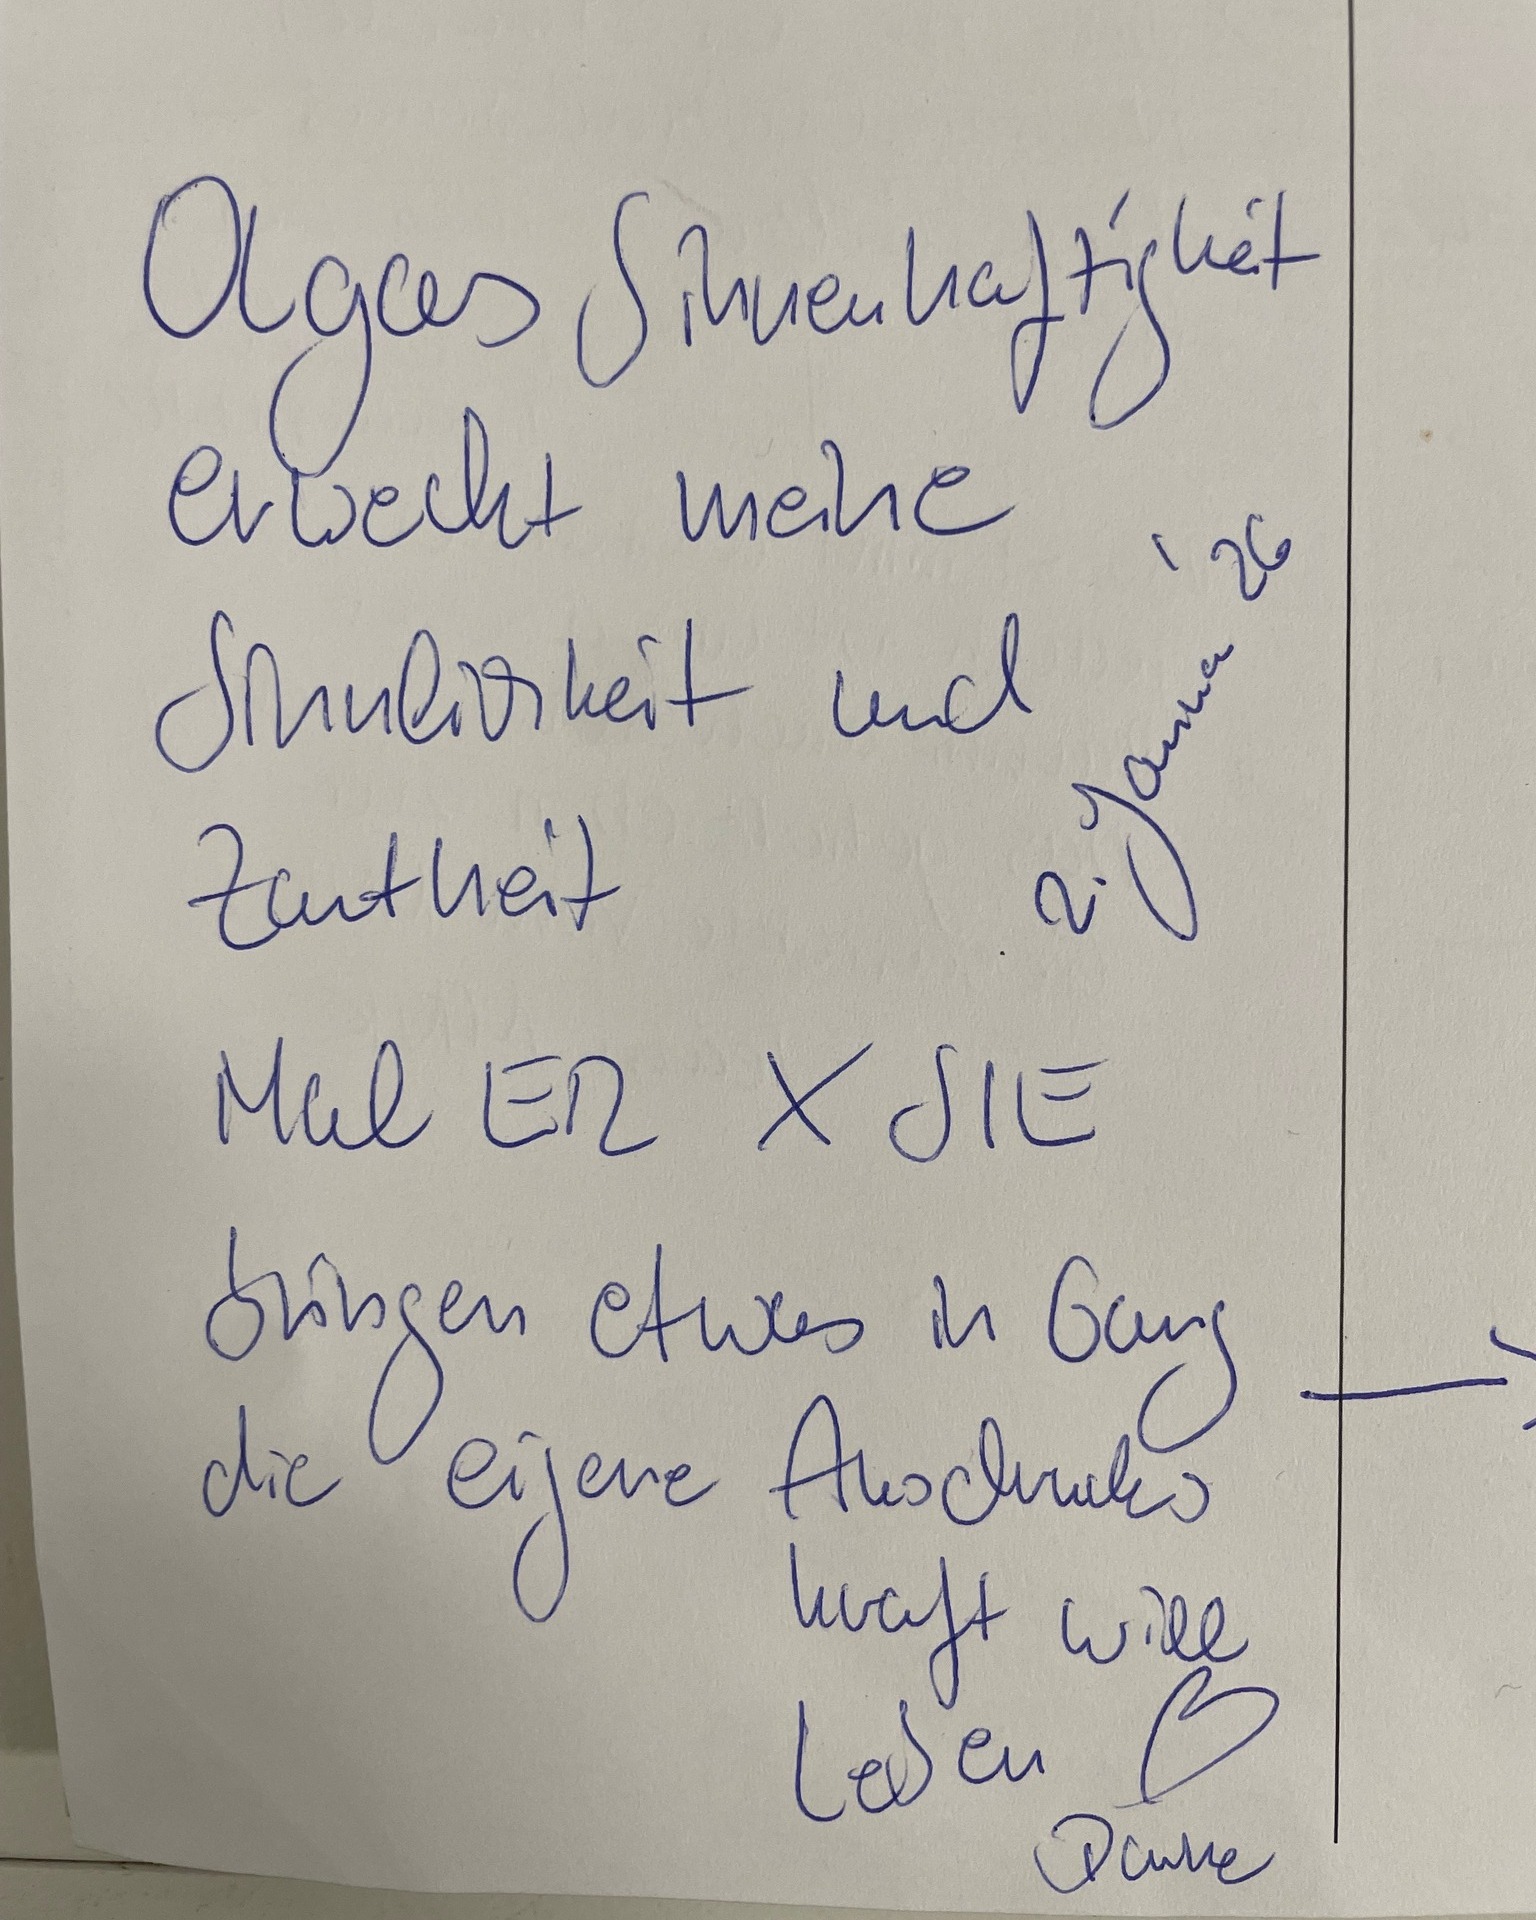 Olgas Sinnenhaftigkeit
erweckt meine
Sinnlichkeit und
Zartheit
2. Januar '26
Mal ER X SIE
bringen etwas in Gang
die eigene Ausdrucks
kraft will
Leben ♡
Danke